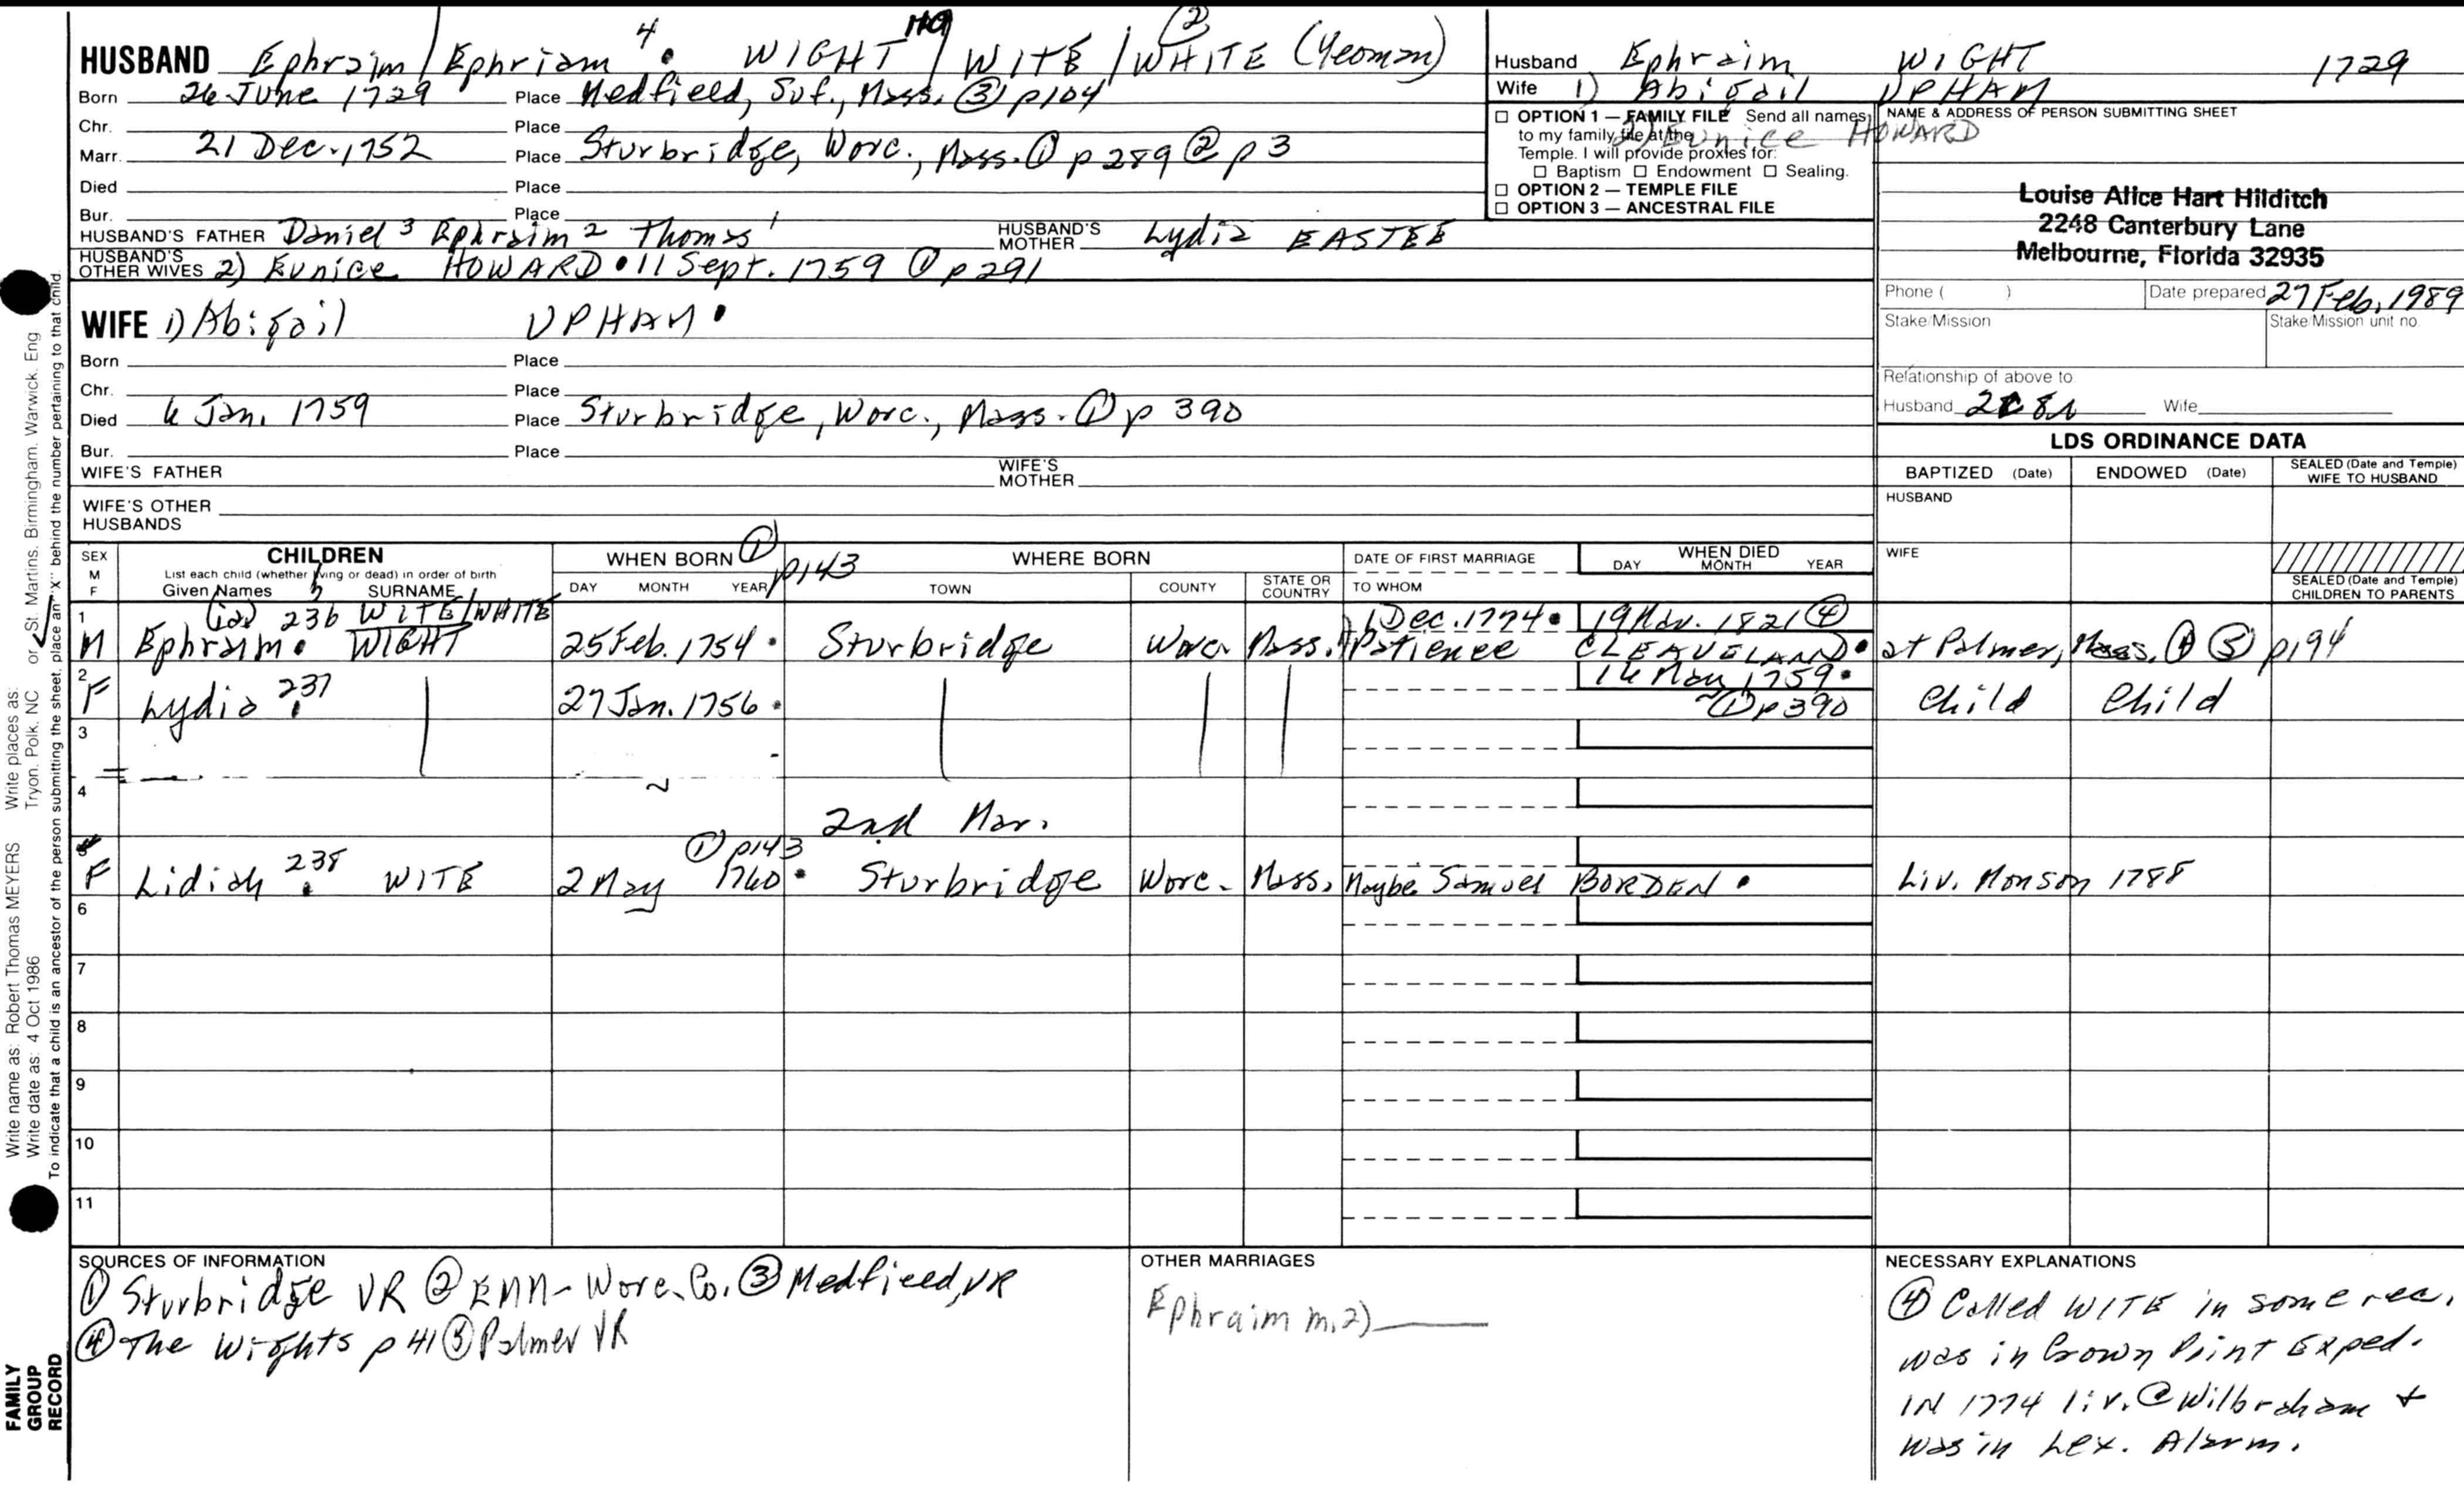 HUSBAND Ephraim/Ephriam 4 WIGHT / WITE / WHITE (Yeoman) (2)
Born 26 June 1729 Place Medfield, Suf., Mass. ③ p104
Chr. Place
Marr. 21 Dec. 1752 Place Sturbridge, Worc., Mass. ① p 289 ② p 3
Died Place
Bur. Place
HUSBAND'S FATHER Daniel 3 Ephraim 2 Thomas 1 HUSBAND'S MOTHER Lydia EASTEE
HUSBAND'S OTHER WIVES 2) Eunice HOWARD • 11 Sept. 1759 ① p 291
WIFE 1) Abigail UPHAM •
Born Place
Chr. Place
Died 6 Jan. 1759 Place Sturbridge, Worc., Mass. ① p 390
Bur. Place
WIFE'S FATHER WIFE'S MOTHER
WIFE'S OTHER HUSBANDS
Husband Ephraim WIGHT 1729
Wife 1) Abigail UPHAM
2) Eunice HOWARD
☐ OPTION 1 — FAMILY FILE Send all names
to my family file at the
Temple. I will provide proxies for:
☐ Baptism ☐ Endowment ☐ Sealing.
☐ OPTION 2 — TEMPLE FILE
☐ OPTION 3 — ANCESTRAL FILE
NAME & ADDRESS OF PERSON SUBMITTING SHEET
Louise Alice Hart Hilditch
2248 Canterbury Lane
Melbourne, Florida 32935
Phone ( ) Date prepared 27 Feb. 1989
Stake/Mission Stake/Mission unit no.
Relationship of above to
Husband Wife
LDS ORDINANCE DATA
BAPTIZED (Date) ENDOWED (Date) SEALED (Date and Temple) WIFE TO HUSBAND
HUSBAND
WIFE
SEALED (Date and Temple) CHILDREN TO PARENTS
SEX M F
CHILDREN
List each child (whether living or dead) in order of birth
Given Names SURNAME
WHEN BORN ① p143
DAY MONTH YEAR
WHERE BORN
TOWN COUNTY STATE OR COUNTRY
DATE OF FIRST MARRIAGE
TO WHOM
WHEN DIED
DAY MONTH YEAR
1 236 WITE/WHITE 1 Dec. 1774 • 19 Nov. 1821 ④
M Ephraim • WIGHT 25 Feb. 1754 • Sturbridge Worc. Mass. Patience CLEAVELAND • at Palmer, Mass. ④ ⑤ p194
2 F Lydia 237 27 Jan. 1756 • 16 Nov 1759 • ① p 390 Child Child
3
4 2nd Mar.
5 F Lidiah 238 WITE 2 May 1760 • ① p143 Sturbridge Worc. Mass. Maybe Samuel BORDEN • Liv. Monson 1788
6
7
8
9
10
11
SOURCES OF INFORMATION
① Sturbridge VR ② EMM - Worc. Co. ③ Medfield, VR
④ The Wights p 41 ⑤ Palmer VR
OTHER MARRIAGES
Ephraim m. 2)
NECESSARY EXPLANATIONS
④ Called WITE in some rec.
was in Crown Point Exped.
IN 1774 liv. @ Wilbraham +
was in Lex. Alarm.
Write places as: Tryon, Polk, NC or St. Martins, Birmingham, Warwick, Eng
Write name as: Robert Thomas MEYERS
Write date as: 4 Oct 1986
To indicate that a child is an ancestor of the person submitting the sheet, place an "X" behind the number pertaining to that child
FAMILY GROUP RECORD